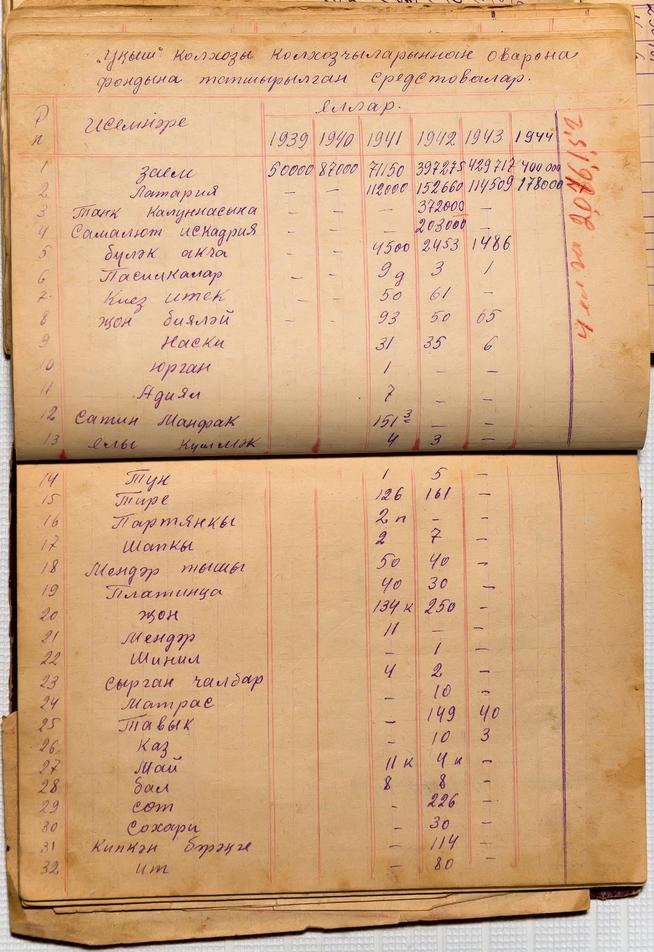 "Уңыш" колхозы колхозчыларыннан оварона
фондына татшырылган средстовалар.
№ п Исемнәре еллар.
1939 1940 1941 1942 1943 1944
1 заем 50000 87000 71150 397275 429717 400000
2 Латария – – 112000 152660 114509 178000
3 Танк калуннасына 372000 –
4 Самалют искадрия – – 203000
5 бүләк акча 4500 2453 1486
6 Пасилкалар – – 9д 3 1
7 Киез итек – – 50 61 –
8 җөн бияләй – – 93 50 65
9 Наски 31 35 6
10 юрган 1 – –
11 Адиял 7 – –
12 Сатин Манфак 151 3 – –
13 елы күлмәк 4 3 –
14 Тун 1 5 –
15 Тире 126 161 –
16 Партянкы 2 п – –
17 Шапкы 2 7 –
18 Мендәр тышы 50 40 –
19 Платинца 40 30 –
20 җөн 134 к 250 –
21 Мендәр 11 – –
22 Шинил – 1 –
23 сырган чалбар 4 2 –
24 Матрас – 10 –
25 Тавык – 149 40
26 Каз – 10 3
27 Май 11 к 4 к –
28 бал 8 8 –
29 сөт – 226 –
30 Сохари – 30 –
31 Кипкән бәрәңге – 114 –
32 ит – 80 –